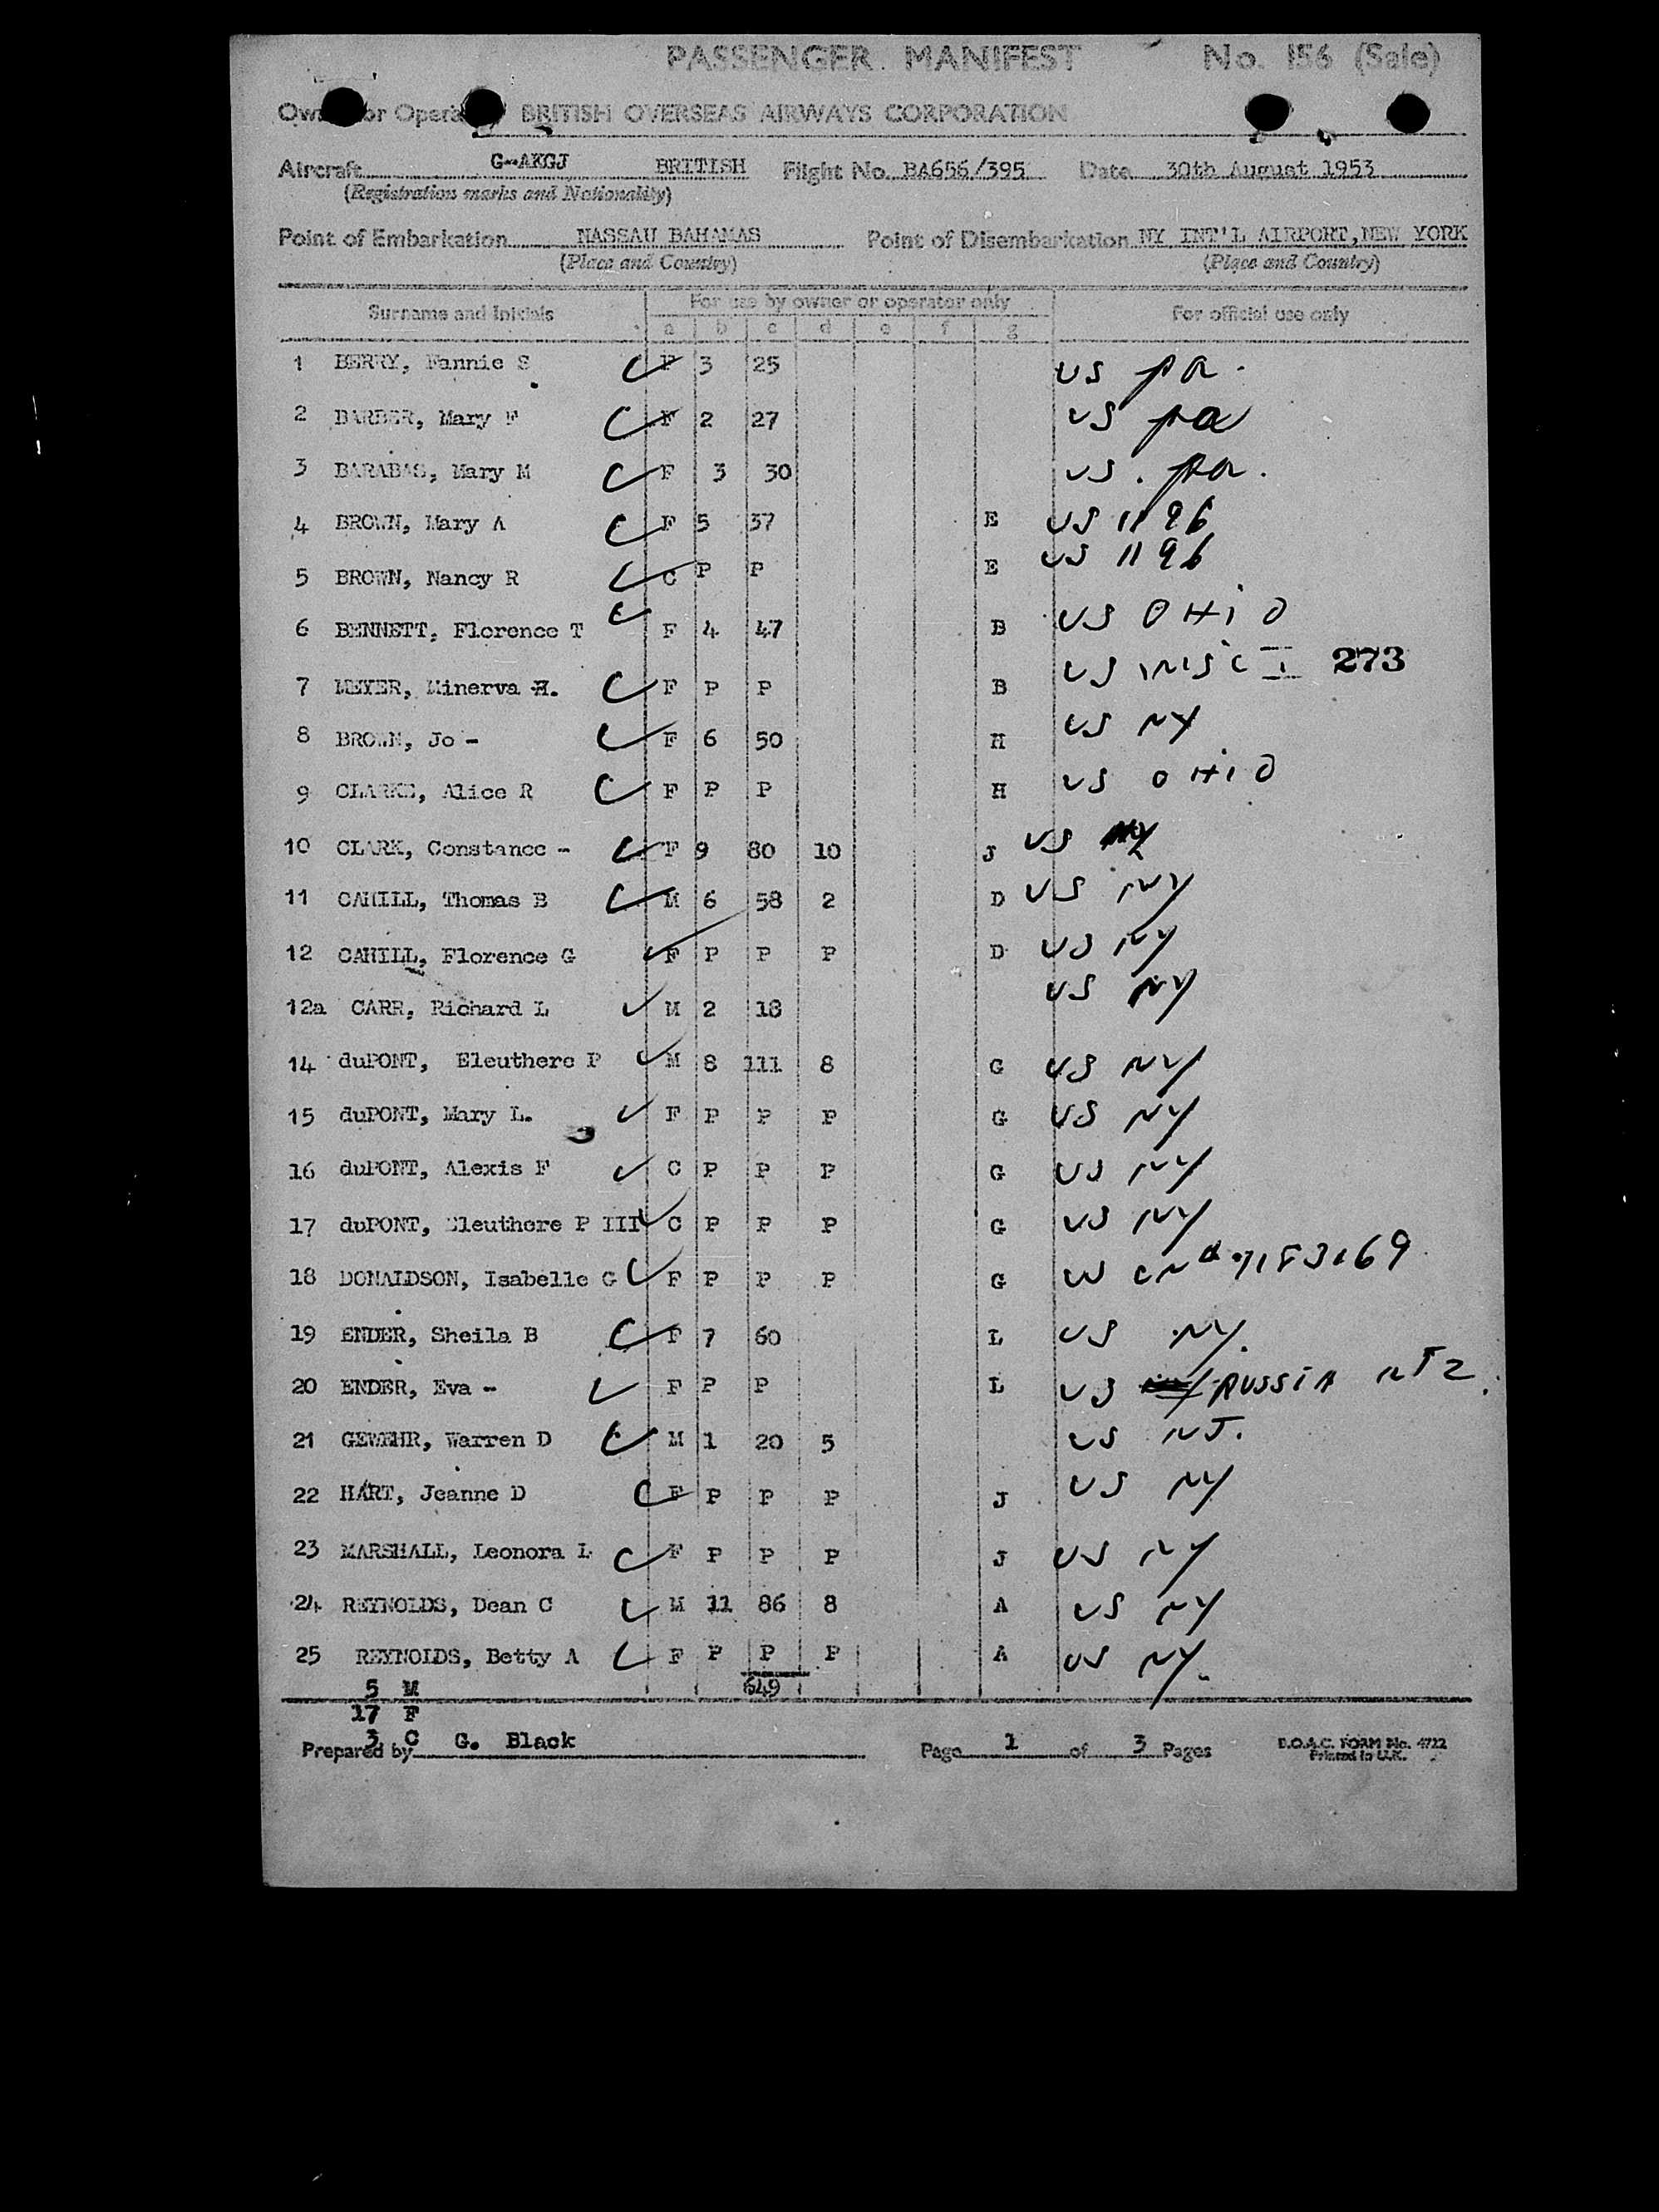 PASSENGER MANIFEST No. 156 (Sale)
BRITISH OVERSEAS AIRWAYS CORPORATION
Aircraft G-AKGJ BRITISH Flight No. BA656/395 Date 30th August 1953
(Registration marks and Nationality)
Point of Embarkation NASSAU BAHAMAS Point of Disembarkation NY INT'L AIRPORT, NEW YORK
(Place and Country) (Place and Country)
Surname and Initials For use by owner or operator only For official use only
a b c d e f g
1 BERRY, Fannie S F 3 25 US Pa.
2 BARBER, Mary F F 2 27 US Pa
3 BARABAS, Mary M F 3 30 US. Pa.
4 BROWN, Mary A F 5 37 E US 1196
5 BROWN, Nancy R C P P E US 1196
6 BENNETT, Florence T F 4 47 B US OHIO
7 MEYER, Minerva H. F P P B US 273
8 BROWN, Jo - F 6 50 H US NY
9 CLARKE, Alice R F P P H US OHIO
10 CLARK, Constance - F 9 80 10 J US NY
11 CAHILL, Thomas B M 6 58 2 D US NY
12 CAHILL, Florence G F P P P D US NY
12a CARR, Richard L M 2 18 US NY
14 duPONT, Eleuthere P M 8 111 8 G US NY
15 duPONT, Mary L. F P P P G US NY
16 duPONT, Alexis F C P P P G US NY
17 duPONT, Eleuthere P III C P P P G US NY
18 DONALDSON, Isabelle G F P P P G
19 ENDER, Sheila B F 7 60 L US NY.
20 ENDER, Eva - F P P L US RUSSIA
21 GEWEHR, Warren D M 1 20 5 US NJ.
22 HART, Jeanne D F P P P J US NY
23 MARSHALL, Leonora L F P P P J US NY
24 REYNOLDS, Dean C M 11 86 8 A US NY
25 REYNOLDS, Betty A F P P P A US NY.
5 M 649
17 F
3 C
Prepared by G. Black Page 1 of 3 Pages B.O.A.C. FORM No. 4722
Printed in U.K.